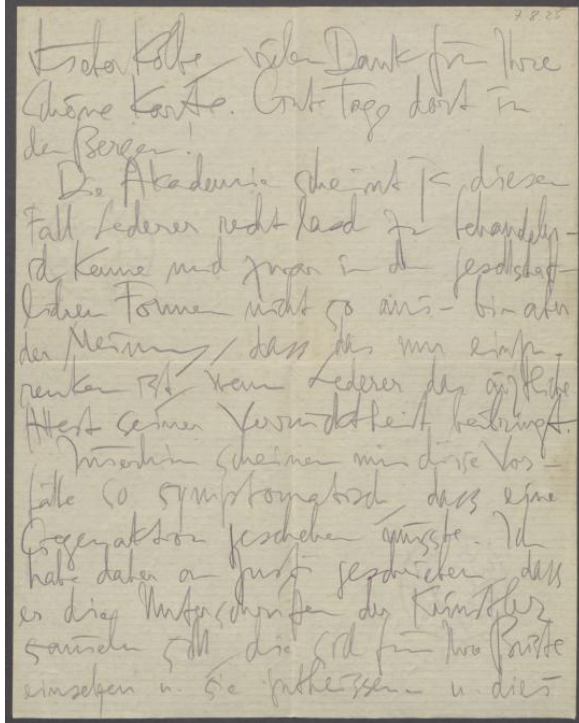 7.8.25
Lieber Kolbe, vielen Dank für Ihre
schöne Karte. Gute Tage dort in
den Bergen!
Die Akademie scheint ja diesen
Fall Lederer recht lasch zu behandeln -
ich kenne mich zwar in den gesellschaft-
lichen Formen nicht so aus - bin aber
der Meinung, dass das nur einzu-
renken ist, wenn Lederer das ärztliche
Attest seiner Verrücktheit beibringt.
Immerhin scheinen mir diese Vor-
fälle so symptomatisch, dass eine
Gegenaktion geschehen müsste. Ich
habe daher an Justi geschrieben, dass
er die Unterschriften der Künstler
sammeln soll, die sich für Ihre Büste
einsetzen u. sie gutheissen - u. dies